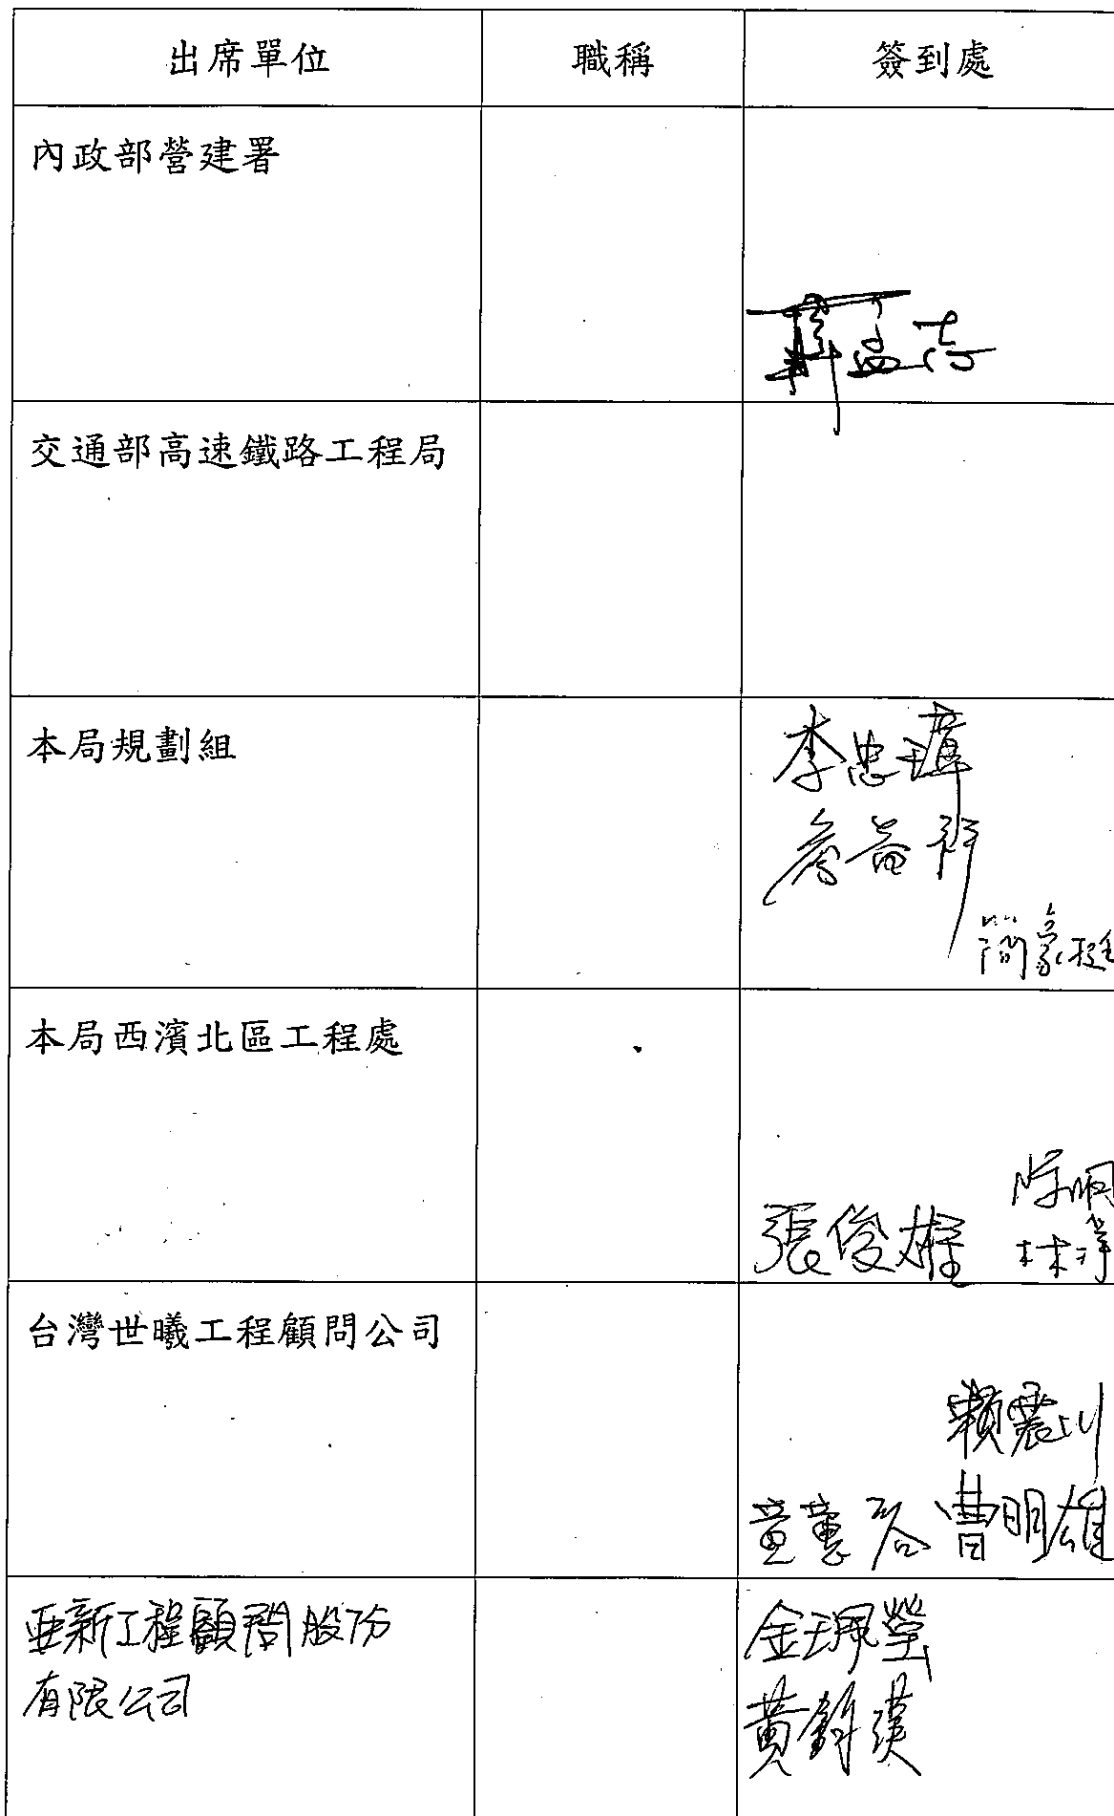 出席單位 職稱 簽到處
內政部營建署
交通部高速鐵路工程局
本局規劃組
李忠璋
簡豪挺
本局西濱北區工程處
張俊雄
台灣世曦工程顧問公司
賴震川
曹明雄
亞新工程顧問股份
有限公司
金珮瑩
黃